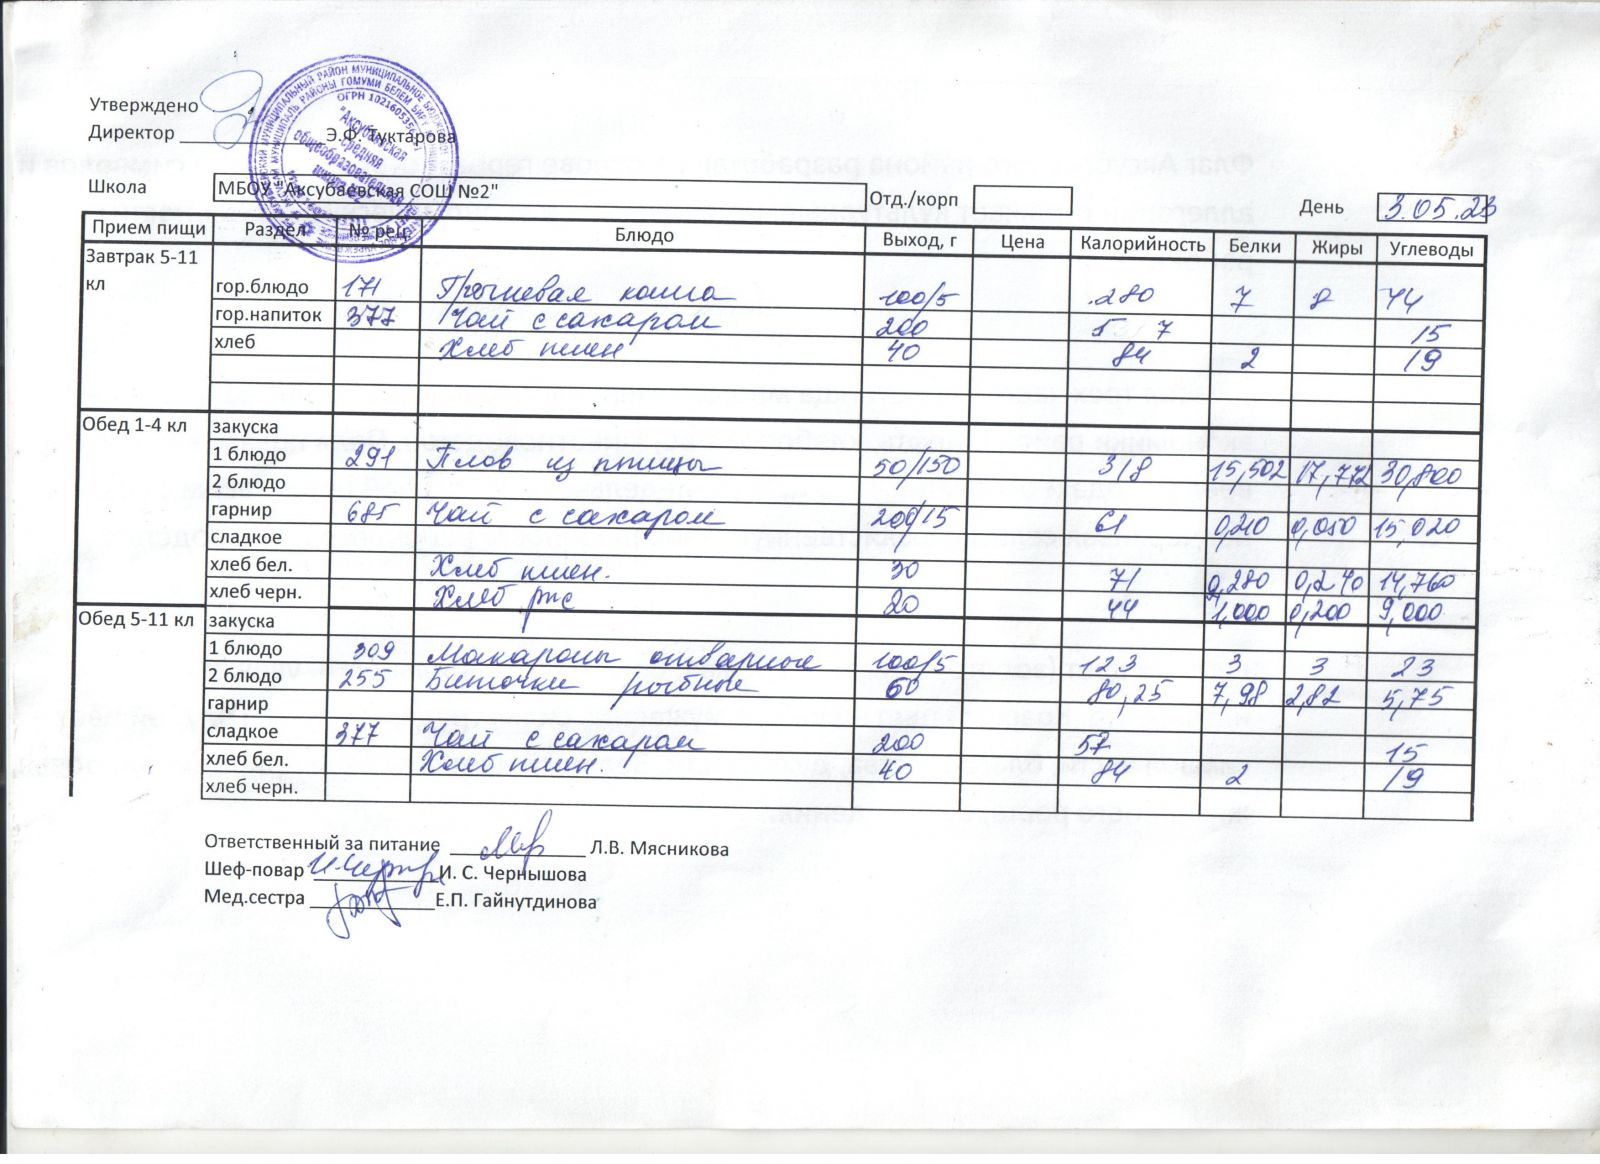 Утверждено
Директор ______________ Э.Ф. Туктарова
ОГРН 102160535
"Аксубаевская
средняя
общеобразовательная
Школа МБОУ "Аксубаевская СОШ №2" Отд./корп День 3.05.23
Прием пищи Раздел № рец. Блюдо Выход, г Цена Калорийность Белки Жиры Углеводы
Завтрак 5-11
кл гор.блюдо 171 Гречневая каша 100/5 280 7 8 44
гор.напиток 377 Чай с сахаром 200 57 15
хлеб Хлеб пшен 40 84 2 19
Обед 1-4 кл закуска
1 блюдо 291 Плов из птицы 50/150 318 15,502 17,772 30,800
2 блюдо
гарнир 685 Чай с сахаром 200/15 61 0,210 0,050 15,020
сладкое
хлеб бел. Хлеб пшен. 30 71 2,280 0,240 14,760
хлеб черн. Хлеб рж 20 44 1,000 0,200 9,000
Обед 5-11 кл закуска
1 блюдо 309 Макароны отварные 100/5 123 3 3 23
2 блюдо 255 Биточки рыбные 60 80,25 7,98 2,82 5,75
гарнир
сладкое 377 Чай с сахаром 200 57 15
хлеб бел. Хлеб пшен. 40 84 2 19
хлеб черн.
Ответственный за питание ____________ Л.В. Мясникова
Шеф-повар ____________ И. С. Чернышова
Мед.сестра ____________ Е.П. Гайнутдинова